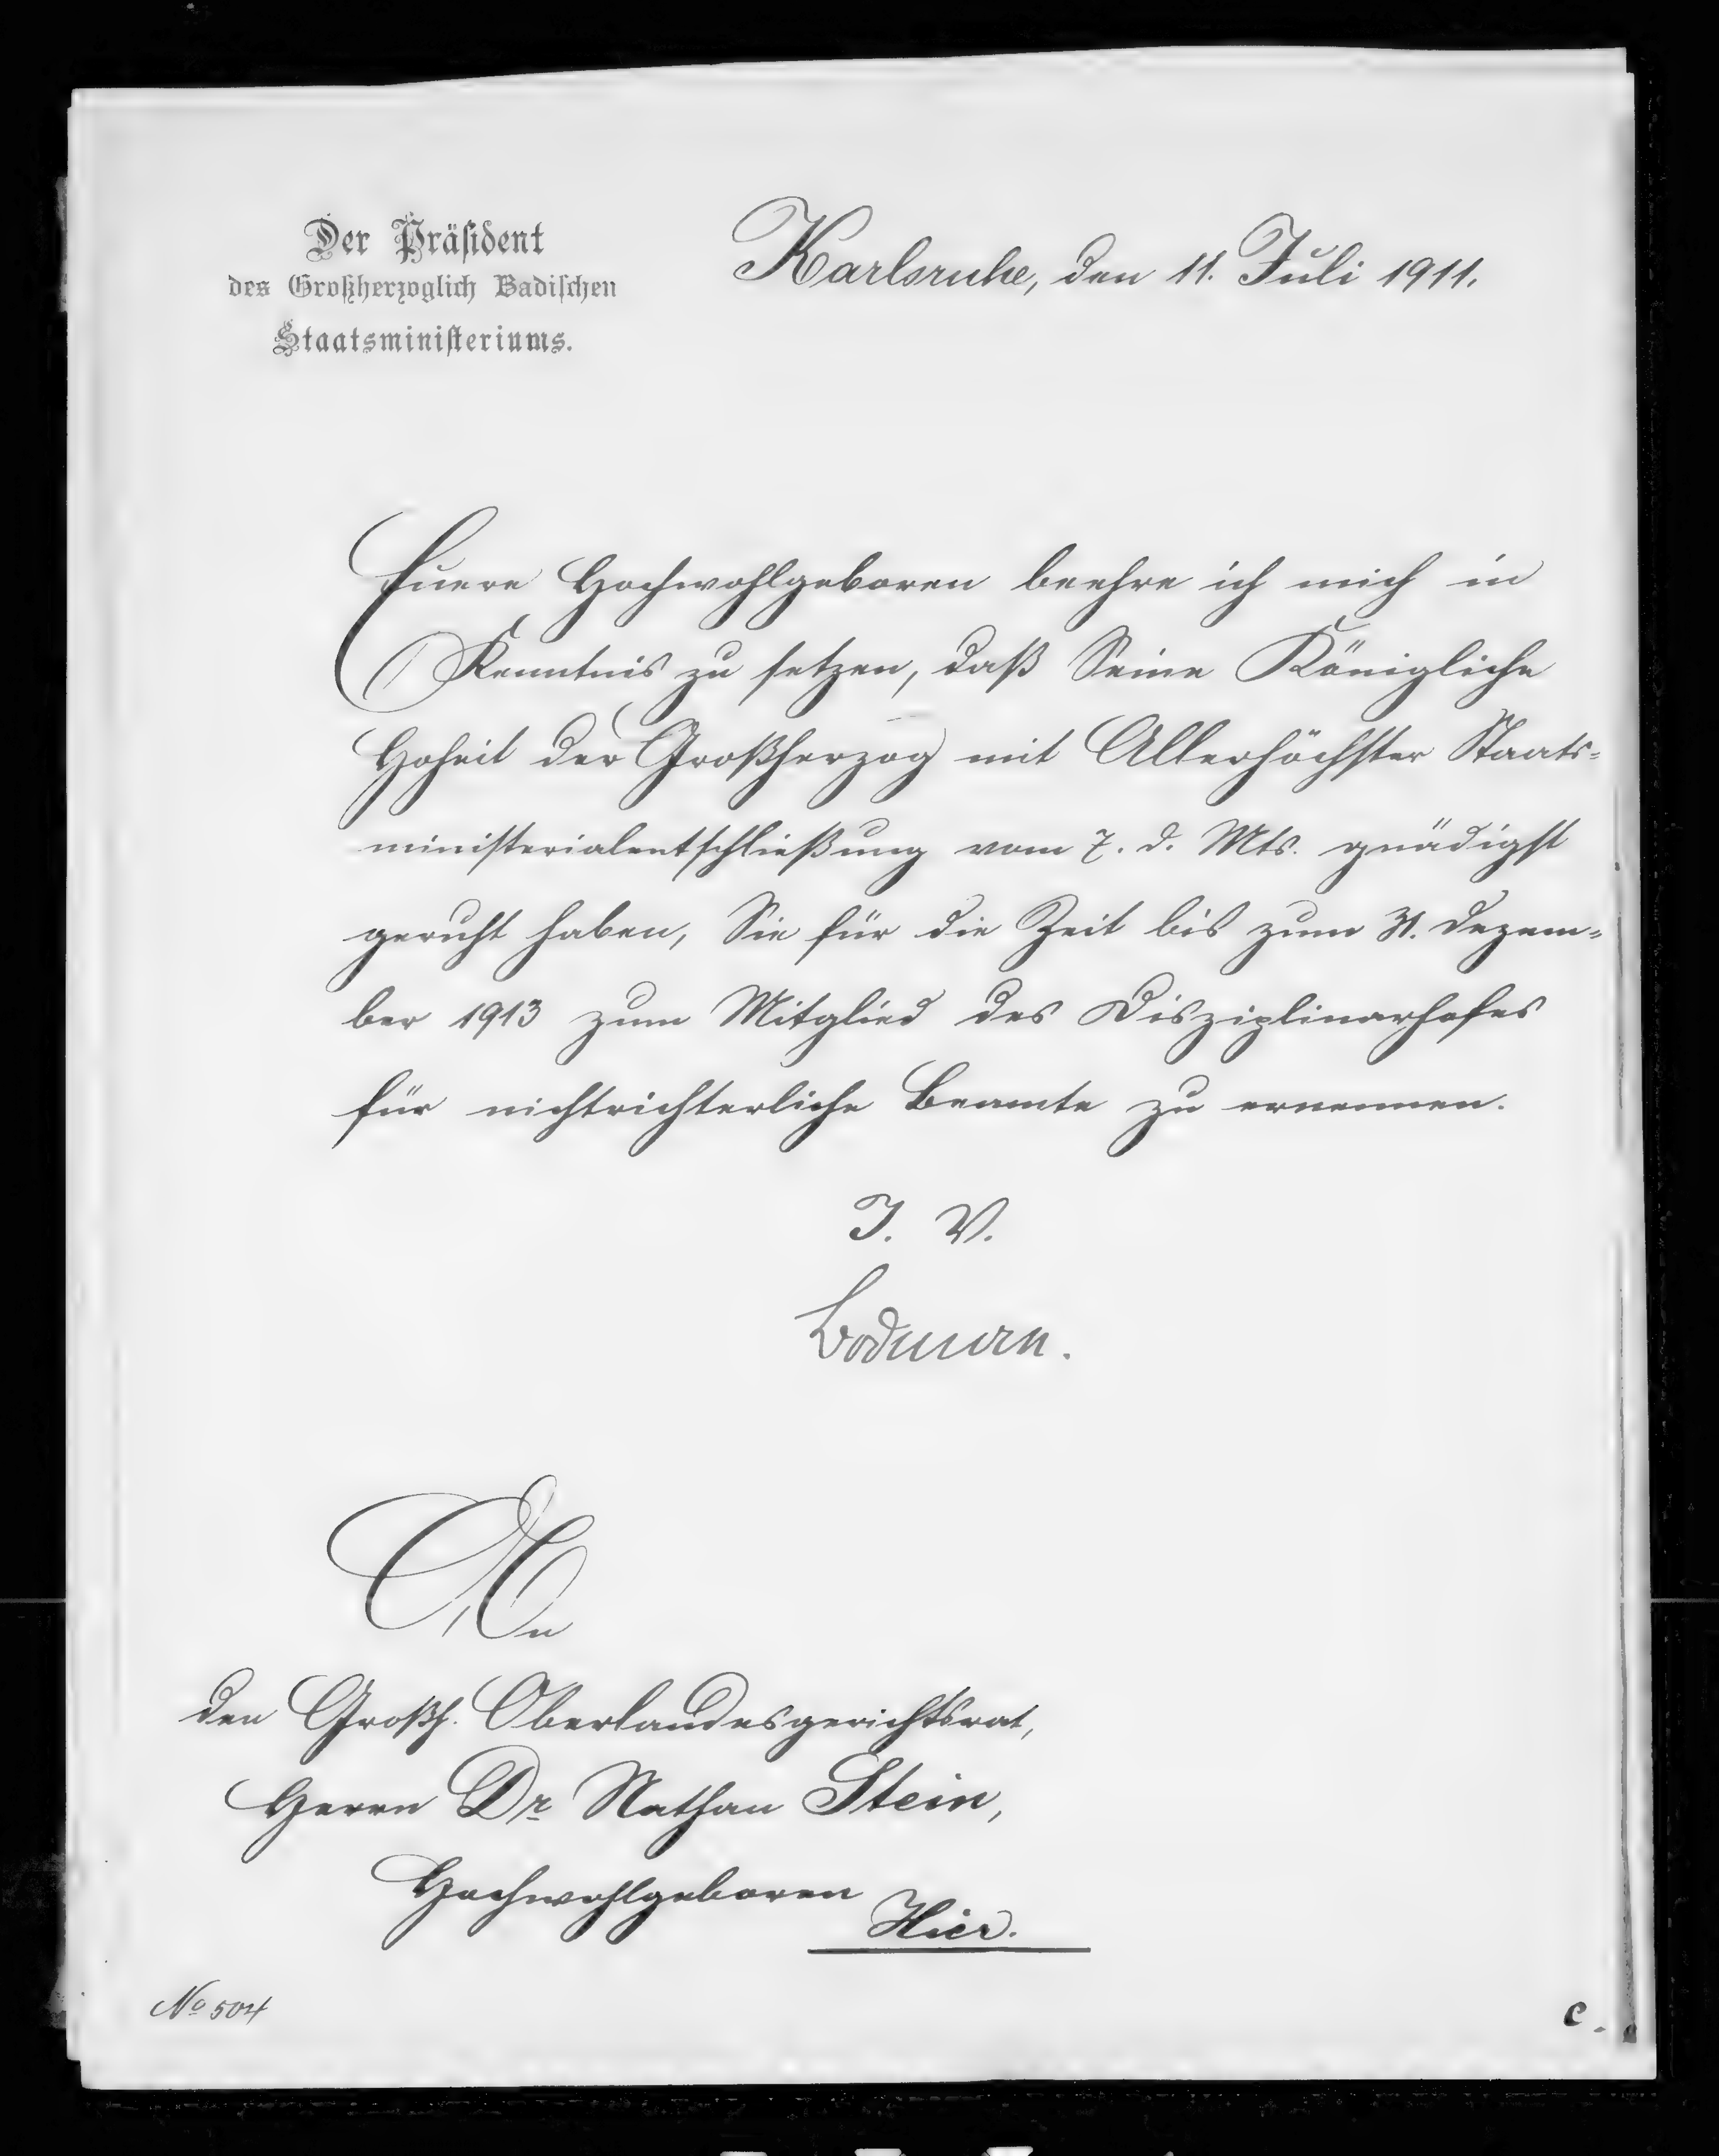 Der Präsident
des Großherzoglich Badischen
Staatsministeriums.
Karlsruhe, den 11. Juli 1911.
Euere Hochwohlgeboren beehre ich mich in
Kenntnis zu setzen, daß Seine Königliche
Hoheit der Großherzog mit Allerhöchster Staats-
ministerialentschließung vom 7. d. Mts. gnädigst
geruht haben, Sie für die Zeit bis zum 31. Dezem-
ber 1913 zum Mitglied des Disziplinarhofes
für nichtrichterliche Beamte zu ernennen.
J. V.
Bodman.
An
den Großh. Oberlandesgerichtsrat,
Herrn Dr Nathan Stein,
Hochwohlgeboren
Hier.
No 504
C.